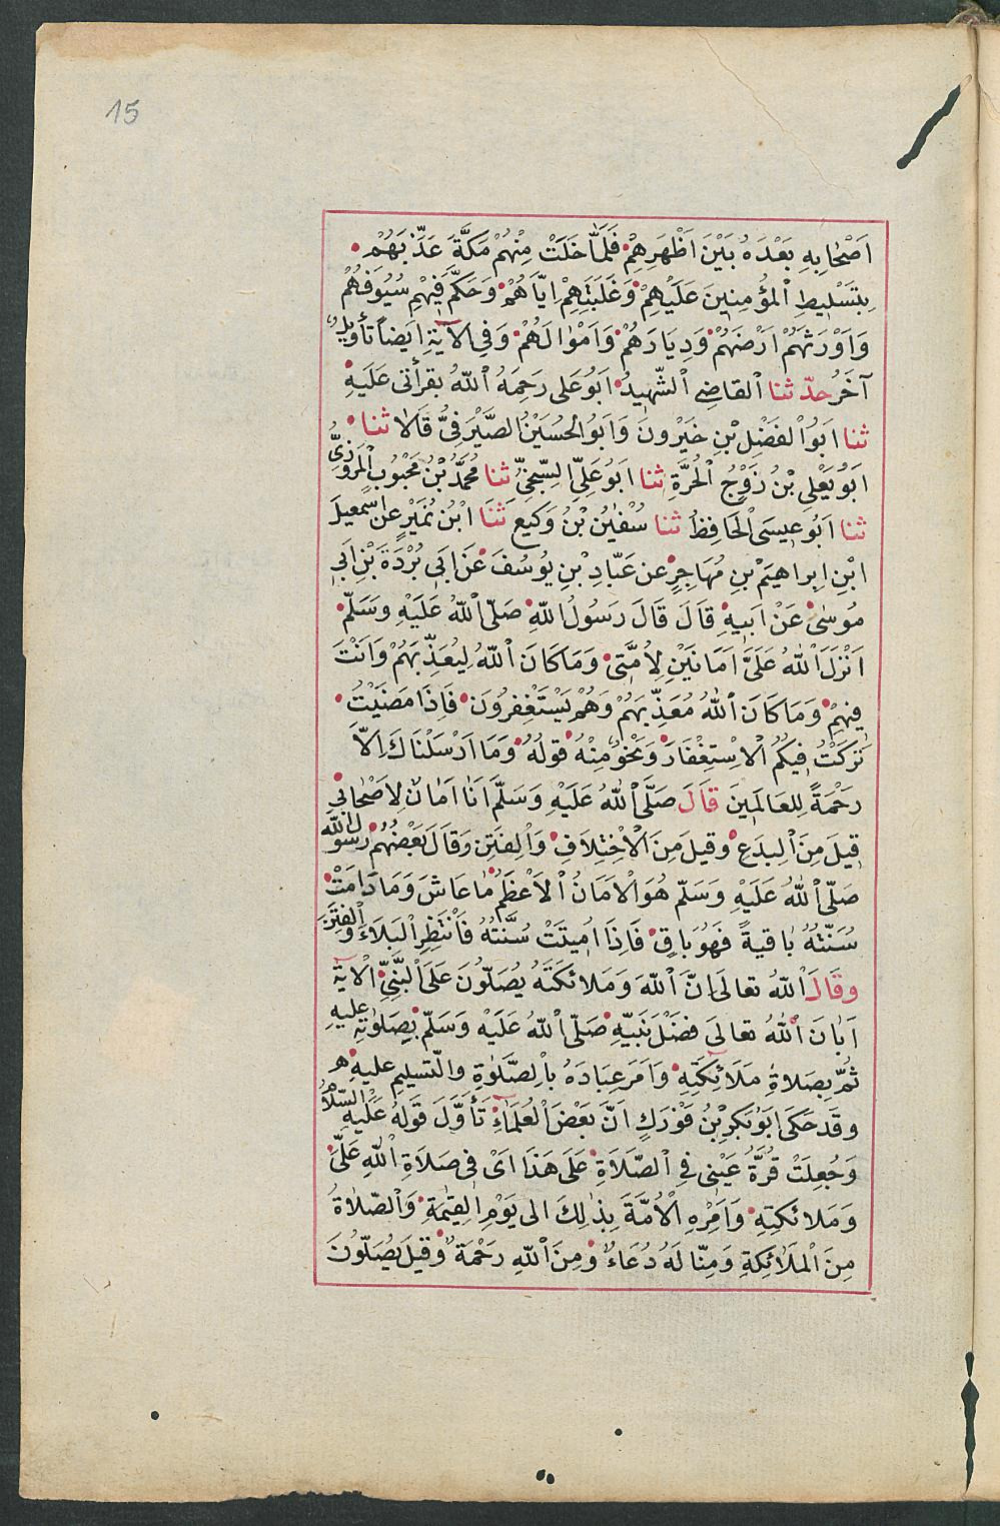 15
اَصْحَابِهِ بَعْدَهُ بَيْنَ اَظْهُرِهِمْ فَلَمَّا خَلَتْ مِنْهُمْ مَكَّةُ عَذَّبَهُمْ
بِتَسْلِيطِ الْمُؤْمِنِينَ عَلَيْهِمْ وَغَلَبَتِهِمْ اِيَّاهُمْ وَحَكَّمَ فِيهِمْ سُيُوفَهُمْ
وَاَوْرَثَهُمْ اَرْضَهُمْ وَدِيَارَهُمْ وَاَمْوَالَهُمْ وَفِى الْآيَةِ اَيْضًا تَأْوِيلٌ
آخَرُ حدّثنا القاضى الشّهيدُ اَبُو عَلى رَحِمَهُ اللّٰهُ بقرأتى عَلَيْهِ
ثنا اَبُو الْفَضْلِ بْنِ خَيْرُونَ وَاَبُو الْحُسَيْنِ الصَّيْرَفِىُّ قَالاَ ثنا
اَبُو يَعْلى بْنُ زَوْجِ الْحُرَّةِ ثنا اَبُو عَلِىّ السِّبْخِىُّ ثنا مُحَمَّدُ بْنُ مَحْبُوبٍ الْمَرْوَزِىُّ
ثنا اَبُو عِيسَى الْحَافِظُ ثنا سُفْيٰنُ بْنُ وَكِيعٍ ثَنَا ابْنُ نُمَيْرٍ عن اسْمٰعِيلَ
ابْنِ اِبراهيمَ بْنِ مُهَاجِرٍ عن عَبَّادِ بْنِ يُوسُفَ عَنْ اَبِى بُرْدَةَ بْنِ اَبى
مُوسٰى عَنْ اَبِيهِ قَالَ قَالَ رَسُولُ اللّٰهِ صَلّى اللّٰهُ عَلَيْهِ وَسَلَّمَ
اَنْزَلَ اللّٰهُ عَلَىَّ اَمَانَيْنِ لِاُمَّتى وَمَا كَانَ اللّٰهُ لِيُعَذِّبَهُمْ وَاَنْتَ
فِيهِمْ وَمَا كَانَ اللّٰهُ مُعَذِّبَهُمْ وَهُمْ يَسْتَغْفِرُونَ فَاِذَا مَضَيْتُ
تَرَكْتُ فِيكُمُ الْاِسْتِغْفَارَ وَنَحْوٌ مِنْهُ قَوْلُهُ وَمَا اَرْسَلْنَاكَ اِلاَّ
رَحْمَةً لِلْعَالَمِينَ قَالَ صَلَّى اللّٰهُ عَلَيْهِ وَسَلَّمَ اَنَا اَمَانٌ لِاَصْحَابى
قِيلَ مِنَ الْبِدَعِ وقيلَ مِنَ الْاِخْتِلاَفِ وَالْفِتَنِ وَقَالَ بَعْضُهُمْ رَسُولُ اللّٰهِ
صَلّى اللّٰهُ عَلَيْهِ وَسَلّم هُوَ الْاَمَانُ الْاَعْظَمُ مٰا عَاشَ وَمَا دَامَتْ
سُنَّتُهُ بٰاقيةً فَهُوَ بٰاقٍ فَاِذَا اُمِيتَتْ سُنَّتُهُ فَانْتَظِرِ الْبَلاَءَ وَالْفِتَنَ
وقَالَ اللّٰهُ تعالَى اِنَّ اللّٰهَ وَمَلاَئكَتَهُ يُصَلّونَ عَلَى النَّبِىِّ الْآيَةَ
اَبَانَ اللّٰهُ تعالَى فضْلَ نَبِيّهِ صَلّى اللّٰهُ عَلَيْهِ وَسَلّمَ بِصَلوٰتِهِ عليهِ
ثُمَّ بِصَلاةِ مَلَائِكَتِهِ وَاَمَرَ عِبَادَهُ بِالصَّلٰوةِ والتّسليمِ عليهِ هـ
وقَد حَكَى اَبُو بَكرِ بْنُ فَوْرَكٍ اَنَّ بَعْضَ الْعُلَمَاءِ تَأَوَّلَ قَوْلَهُ عَلَيْهِ السَّلاَمُ
وَجُعِلَتْ قُرَّةُ عَيْنى فِى الصَّلَاةِ عَلَى هَذَا اَىْ فى صَلاَةِ اللّٰهِ عَلَىَّ
وَمَلائكتِهِ وَاَمْرِهِ الْاُمَّةَ بِذٰلِكَ الى يَوْمِ الْقِيٰمَةِ وَالصّلاَةُ
مِنَ الْمَلَائِكَةِ وَمِنّا لَهُ دُعَاءٌ وَمِنَ اللّٰهِ رَحْمَةٌ وَقِيلَ يُصَلّونَ